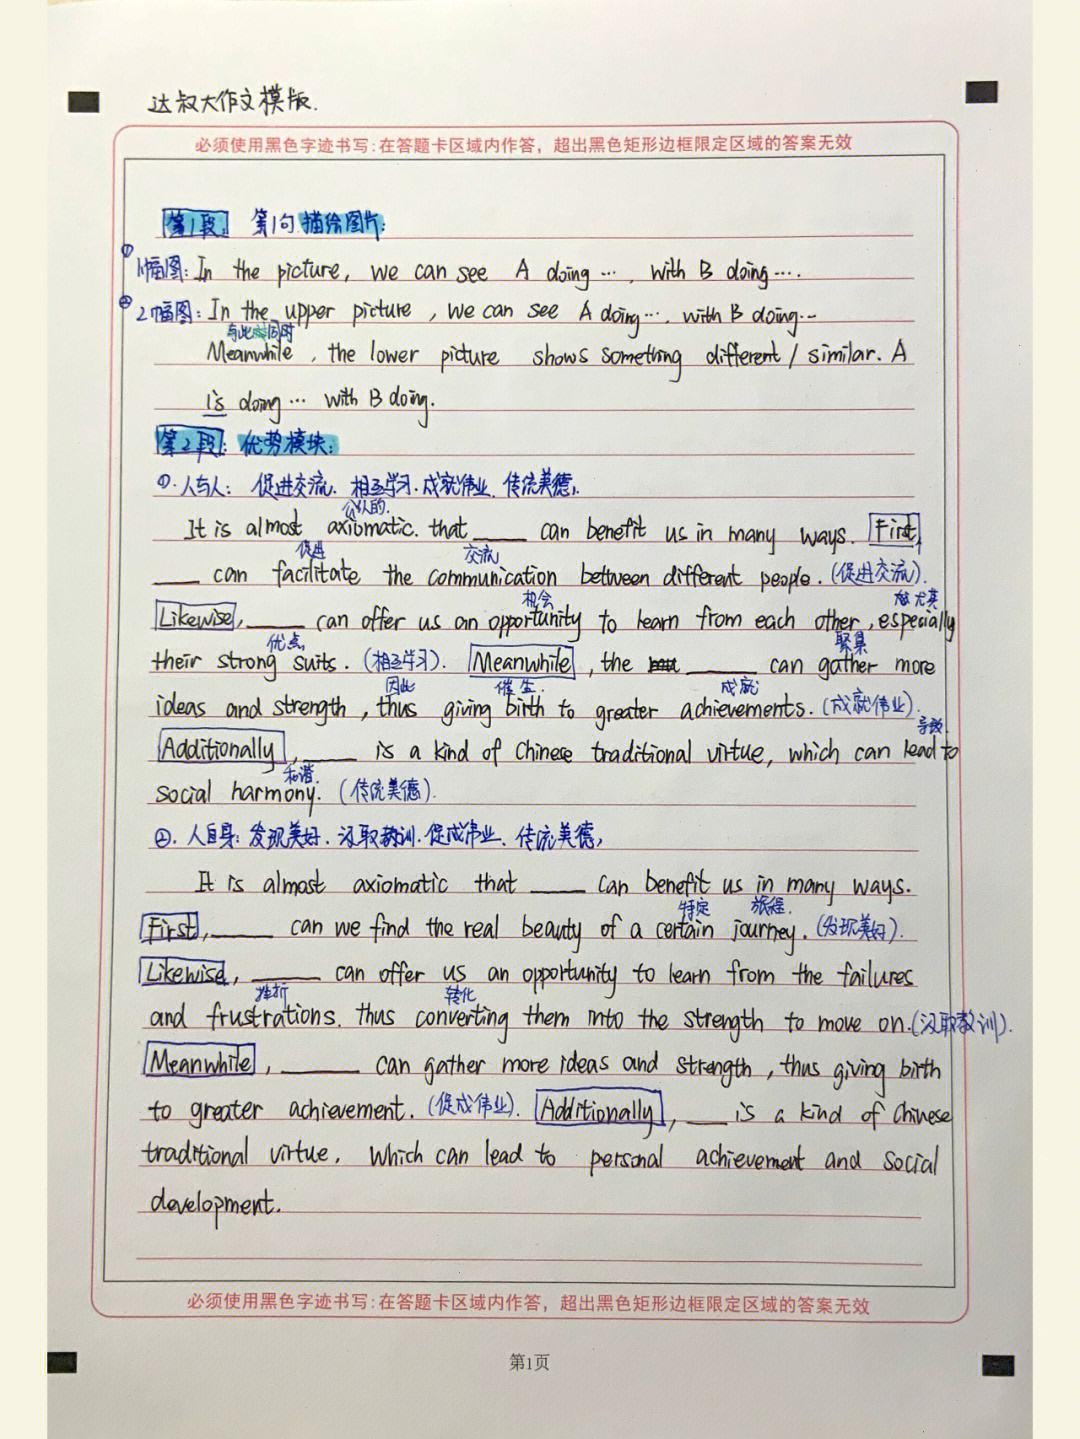 达叔大作文模版.
必须使用黑色字迹书写:在答题卡区域内作答，超出黑色矩形边框限定区域的答案无效
第1段: 第1句 描绘图片:
① 1幅图: In the picture, we can see A doing ···, with B doing ····.
② 2幅图: In the upper picture, we can see A doing···, with B doing···
与此同时
Meanwhile, the lower picture shows something different / similar. A
is doing ··· with B doing.
第2段: 优势模块:
①. 人与人: 促进交流. 相互学习. 成就伟业. 传统美德.
公认的.
It is almost axiomatic. that ____ can benefit us in many ways. First,
促进 交流
____ can facilitate the communication between different people. (促进交流).
机会 尤其
Likewise, ____ can offer us an opportunity to learn from each other, especially
优点 聚集
their strong suits. (相互学习). Meanwhile, the ____ can gather more
因此 催生. 成就
ideas and strength, thus giving birth to greater achievements. (成就伟业).
导致
Additionally, ____ is a kind of Chinese traditional virtue, which can lead to
和谐.
social harmony. (传统美德).
②. 人自身: 发现美好. 汲取教训. 促成伟业. 传统美德,
It is almost axiomatic that ____ can benefit us in many ways.
特定 旅程.
First, ____ can we find the real beauty of a certain journey. (发现美好).
Likewise, ____ can offer us an opportunity to learn from the failures
挫折 转化
and frustrations. thus converting them into the strength to move on. (汲取教训).
Meanwhile, ____ can gather more ideas and strength, thus giving birth
to greater achievement. (促成伟业). Additionally, ____ is a kind of Chinese
traditional virtue, which can lead to personal achievement and social
development.
必须使用黑色字迹书写:在答题卡区域内作答，超出黑色矩形边框限定区域的答案无效
第1页